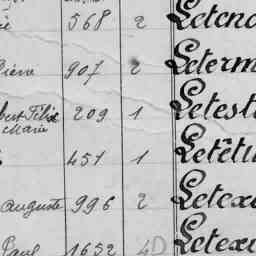 568 2 Letenc
907 2 Leterm
bert Félix 209 1 Letest
Marie
457 1 Letêtu
auguste 996 2 Letex
Paul 1652 4D Letexi